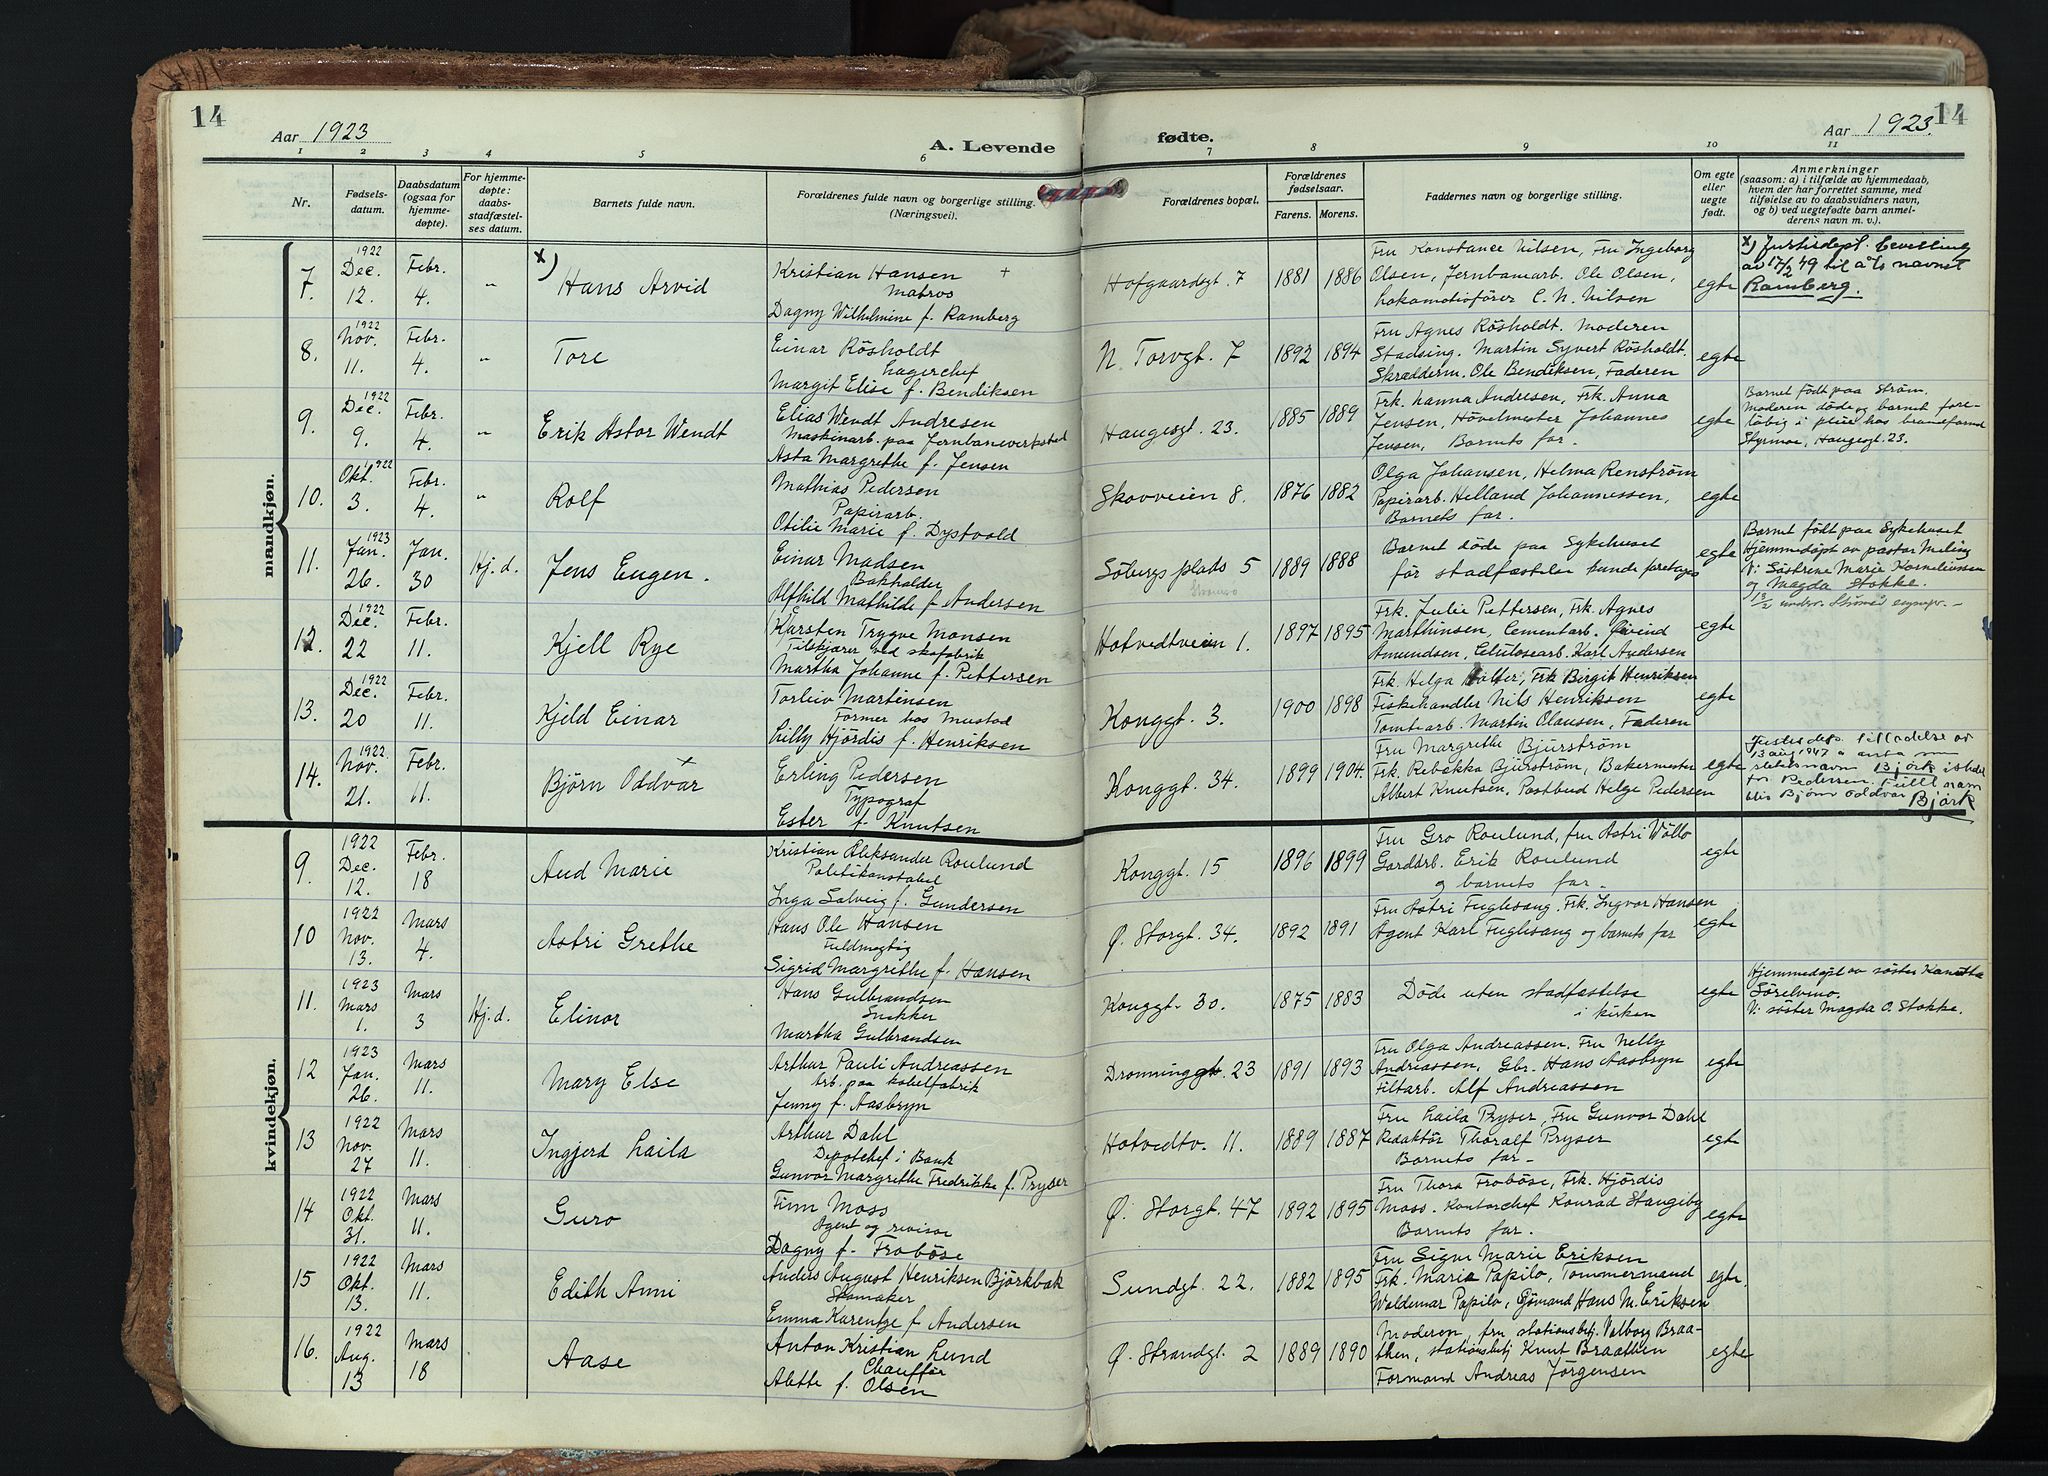 14
Aar 1923
A. Levende
1 2 3 4 5 6
Nr.
Fødsels-
datum.
Daabsdatum
(ogsaa for
hjemme-
døpte).
For hjemme-
døpte:
daabs-
stadfæstel-
ses datum.
Barnets fulde navn.
Forældrenes fulde navn og borgerlige stilling.
(Næringsvei).
fødte.
Aar 1923.
14
7 8 9 10 11
Forældrenes bopæl.
Forældrenes
fødselsaar.
Farens. Morens.
Faddernes navn og borgerlige stilling.
Om egte
eller
uegte
født.
Anmerkninger
(saasom: a) i tilfælde av hjemmedaab,
hvem der har forrettet samme, med
tilføielse av to daabsvidners navn,
og b) ved uegtefødte barn anmel-
derens navn m. v.).
mandkjøn.
7. 1922 Dec. 12. Febr. 4. " x) Hans Arvid
Kristian Hansen +
Matros
Dagny Wilhelmine f. Ramberg
Hofgaardsgt. 7 1881 1886
Fru Konstance Nilsen, Fru Ingeborg
Olsen, Jernbanearb. Ole Olsen,
Lokomotivfører C. N. Nilsen
egte
x) Justisdept. bevilling
av 17/2 49 til å ta navnet
Ramberg.
8. 1922 Nov. 11. Febr. 4. " Tore
Einar Rösholdt
Lagerchef
Margit Elise f. Bendiksen
N. Torvgt. 7 1892 1894
Fru Agnes Rösholdt. Moderen
Stadsing. Martin Syvert Rösholdt.
Skrædderm. Ole Bendiksen, Faderen
egte
9. 1922 Dec. 9. Febr. 4. " Erik Astor Wendt
Elias Wendt Andresen
Maskinarb. paa Jernbaneverksted
Asta Margrethe f. Jensen
Haugesgt. 23. 1885 1889
Frk. Hanna Andresen, Frk. Anna
Jensen, Hövelmester Johannes
Jensen, Barnets far.
egte
Barnet født paa Strøm.
Moderen døde og barnet fore-
løbig i pleie hos brandformd
Styrmoe, Haugesgt. 23.
10. 1922 Okt. 3. Febr. 4. " Rolf
Mathias Pedersen
Papirarb.
Otilie Marie f. Dystvold
Skovveien 8. 1876 1882
Olga Johansen, Helma Renstrøm
Papirarb. Helland Johannessen,
Barnets far.
egte
11. 1923 Jan. 26. Jan. 30 Hj. d. Jens Eugen.
Einar Madsen
Bokholder
Alfhild Mathilde f. Andersen
Söbergs plads 5 1889 1888
Strømsø
Barnet döde paa Sykehuset
før stadfæstelse kunde foretages
egte
Barnet født paa Sykehuset
Hjemmedøpt av pastor Meling
V: Søstrene Marie Kornelinssen
og Magda Stokke.
12. 1922 Dec. 22 Febr. 11. Kjell Rye
Karsten Trygve Monsen
Tilskjærer ved skofabrik
Martha Johanne f. Pettersen
Hotvedtveien 1. 1897 1895
Frk. Julie Pettersen, Frk. Agnes
Marthinsen, Cementarb. Eivind
Amundsen, Celulosearb. Karl Andersen
egte
13. 1922 Dec. 20 Febr. 11. Kjeld Einar
Torleiv Martinsen
Former hos Mustad
Lilly Hjördis f. Henriksen
Konggt. 3. 1900 1898
Frk. Helga Holter, Frk. Birgit Henriksen
Fiskehandler Nils Henriksen
Tomtearb. Martin Olausen, Faderen
egte
14. 1922 Nov. 21. Febr. 11. Björn Oddvar x
Erling Pedersen
Typograf
Ester f. Knutsen
Konggt. 34. 1899 1904.
Fru Margrethe Bjurström
Frk. Rebekka Bjurström, Bakermester
Albert Knutsen, Postbud Helge Pedersen
egte
Justisdeps. tilladelse av
13 aug. 1947 å anta som
slektsnavn Bjørk isteden
for Pedersen. Fullt navn
blir Bjørn Oddvar Bjørk
kvindekjøn.
9. 1922 Dec. 12. Febr. 18 Aud Marie
Kristian Aleksander Roulund
Politikonstabel
Inga Solveig f. Gundersen
Konggt. 15 1896 1899
Fru Gro Roulund, fru Astri Vøllo
Gardarb. Erik Roulund
og barnets far.
egte
10 1922 Nov. 13. Mars 4. Astri Grethe
Hans Ole Hansen
Fuldmægtig
Sigrid Margrethe f. Hansen
Ø. Storgt. 34. 1892 1891
Fru Astri Fuglesang. Frk. Ingvor Hansen
Agent Karl Fuglesang og barnets far
egte
11. 1923 Mars 1. Mars 3 Hj. d. Elinor
Hans Gulbrandsen
Snekker
Martha Gulbrandsen
Konggt. 30. 1875 1883
Döde uten stadfæstelse
i kirken
egte
Hjemmedøpt av søster
V: søster Magda O. Stokke.
12 1923 Jan. 26. Mars 11. Mary Else
Arthur Pauli Andreassen
Arb. paa kabelfabrik
Jenny f. Aasbryn
Dronninggt. 23 1891 1893
Fru Olga Andreassen, Fru Nelly
Andreassen, Gbr. Hans Aasbryn
Filtarb. Alf Andreassen
egte
13 1922 Nov. 27 Mars 11. Ingjerd Laila
Arthur Dahl
Depotchef i Bank
Gunvor Margrethe Fredrikke f. Pryser
Hotvedtv. 11. 1889 1887
Fru Laila Pryser, Fru Gunvor Dahl
Redaktör Thoralf Pryser
Barnets far.
egte
14 1922 Okt. 31. Mars 11. Guro
Finn Moss
Agent og revisor
Dagny f. Froböse
Ø. Storgt. 47 1892 1895
Fru Thora Froböse, Frk. Hjördis
Moss. Kontorchef Konrad Stangeby
Barnets far.
egte
15 1922 Okt. 13. Mars 11. Edith Anni
Anders August Henriksen Björkbak
Skomaker
Emma Karentze f. Andersen
Sundgt. 22. 1882 1895
Fru Signe Marie Eriksen
Frk. Maria Papilo, Tømmermand
Waldemar Papilo, Sjömand Hans M. Eriksen
egte.
16. 1922 Aug. 13 Mars 18 Aase
Anton Kristian Lund
Chauffør
Alette f. Olsen
Ø. Strandgt. 2 1889 1890
Moderen, fru stationsbetj. Valborg Braa-
then, stationsbetj Knut Braathen
Formand Andreas Jørgensen
egte